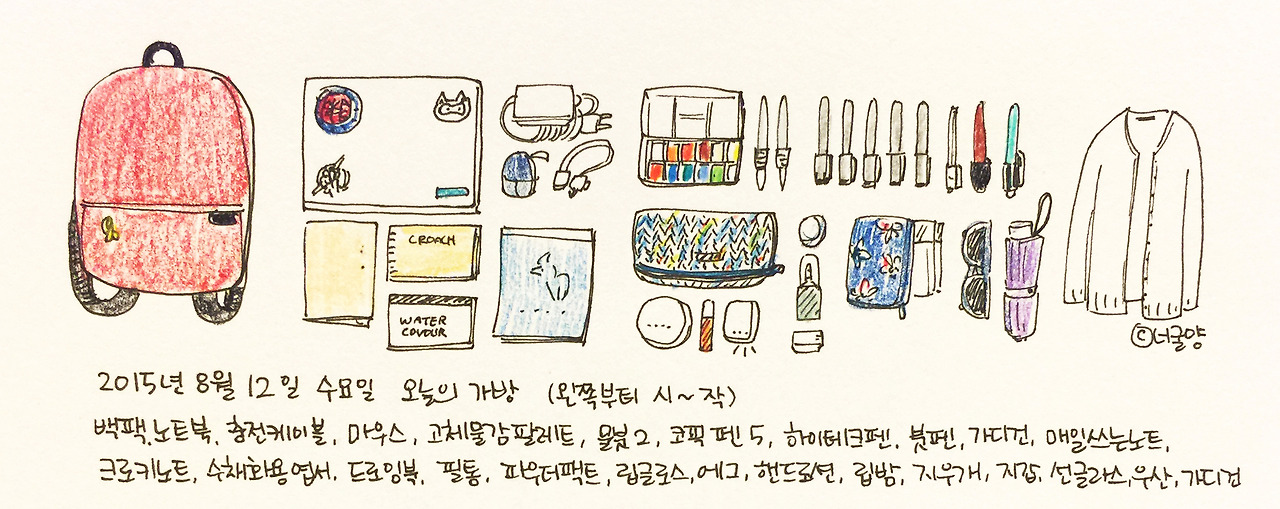 CROACH
WATER
COVOUR
©너굴양
2015년 8월 12일 수요일 오늘의 가방 (왼쪽부터 시~작)
백팩, 노트북, 충전케이블, 마우스, 고체물감팔레트, 물붓2, 코픽 펜 5, 하이테크펜, 붓펜, 가디건, 매일쓰는노트,
크로키노트, 수채화용엽서, 드로잉북, 필통, 파우더팩트, 립글로스, 에그, 핸드로션, 립밤, 지우개, 지갑, 선글라스, 우산, 가디건